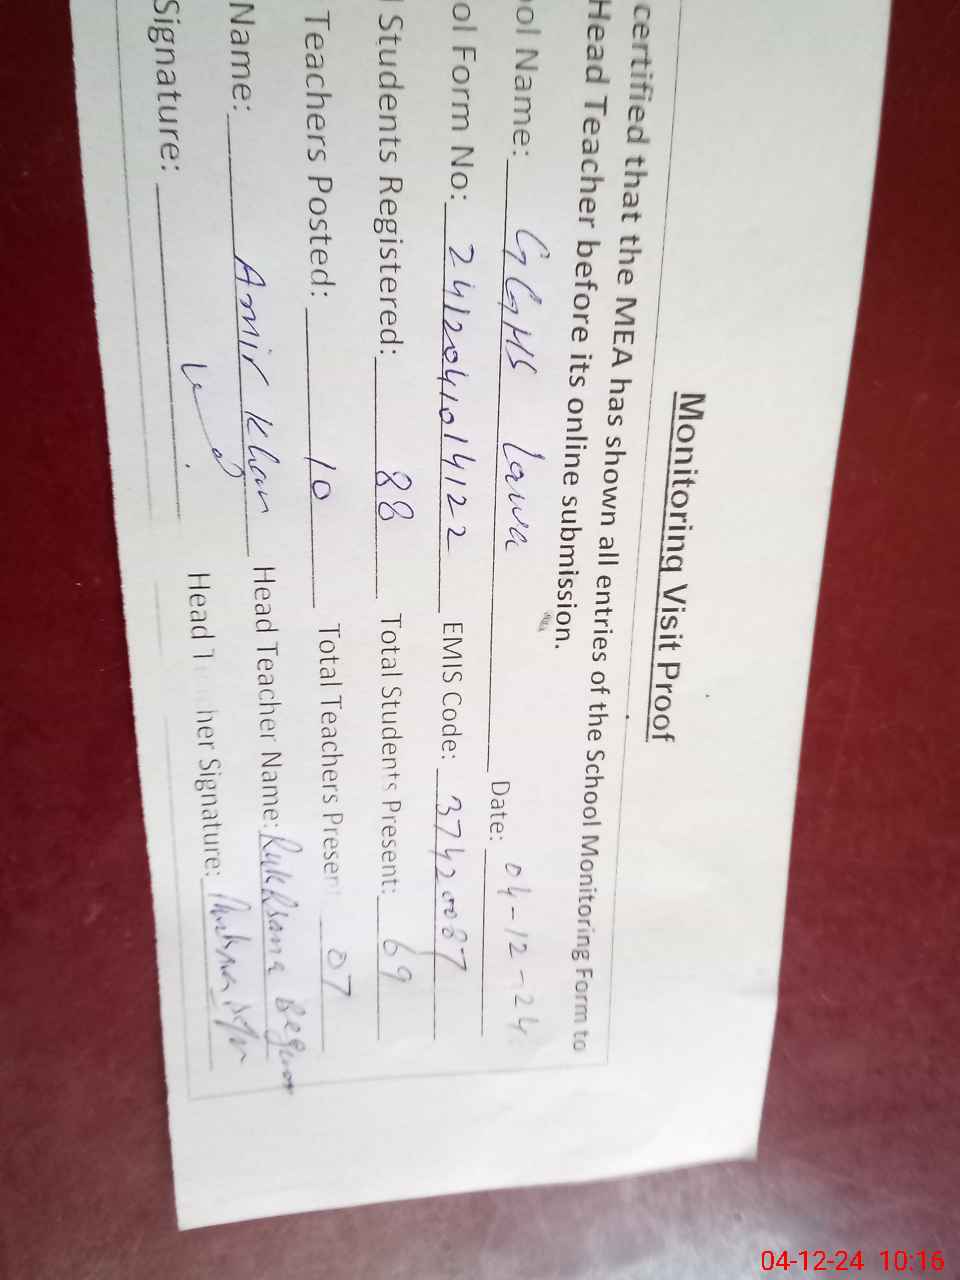 Monitoring Visit Proof
certified that the MEA has shown all entries of the School Monitoring Form to
Head Teacher before its online submission.
ol Name: GGHS Lawa Date: 04-12-24
ol Form No: 2412041014122 EMIS Code: 37420087
Students Registered: 88 Total Students Present: 69
Teachers Posted: 10 Total Teachers Presen 07
Name: Amir Khan Head Teacher Name: Rukhsana Begum
Signature: Head T her Signature:
04-12-24 10:16